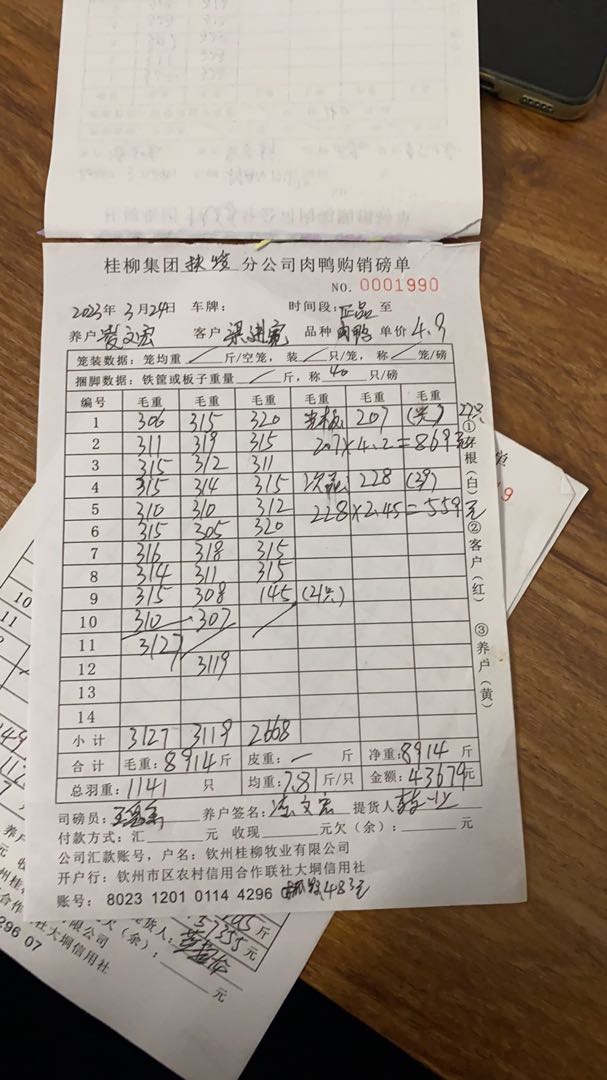 桂柳集团扶绥分公司肉鸭购销磅单
NO. 0001990
2023年3月24日 车牌： 时间段：正品 至
养户 凌文宏 客户 品种 肉鸭 单价 4.9
笼装数据：笼均重 斤/空笼，装 只/笼，称 笼/磅
捆脚数据：铁筐或板子重量 斤，称 40 只/磅
编号 毛重 毛重 毛重 毛重 毛重 毛重
1 306 315 320 207 27只
2 311 319 315 207×4.2=869元
3 315 312 311
4 315 314 315 次品 228
5 310 310 312 228×2.45=559元
6 315 305 320
7 316 318 315
8 314 311 315
9 315 308 145 (21只)
10 310 307
11 3127
12 3119
13
14
小计 3127 3119 2668
合计 毛重：8914斤 皮重：— 斤 净重：8914斤
总羽重：1141 只 均重：7.81斤/只 金额：43679元
①存根（白）②客户（红） ③养户（黄）
司磅员： 养户签名：凌文宏 提货人
付款方式：汇 元 收现 元欠（余）： 元
公司汇款账号，户名：钦州桂柳牧业有限公司
开户行：钦州市区农村信用合作联社大垌信用社
账号： 8023 1201 0114 4296 0
483元
10
11
欠（余）：
元
有限公司
社大垌信用社
296 07
提货人：
57355元
斤